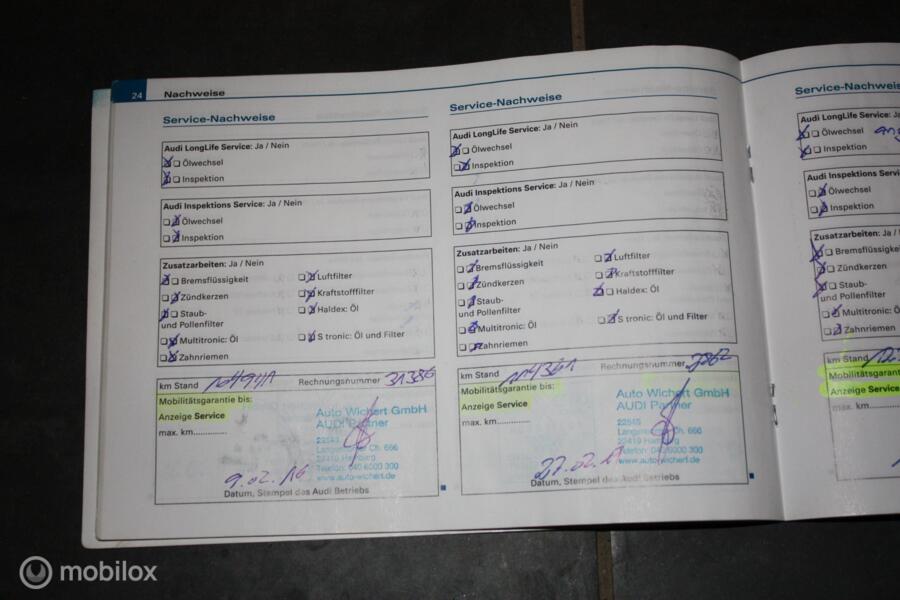 24 Nachweise
Service-Nachweise
Audi LongLife Service: Ja / Nein
Ölwechsel
Inspektion
Audi Inspektions Service: Ja / Nein
Ölwechsel
Inspektion
Zusatzarbeiten: Ja / Nein
Bremsflüssigkeit
Luftfilter
Zündkerzen
Kraftstofffilter
Staub-
und Pollenfilter
Haldex: Öl
Multitronic: Öl
S tronic: Öl und Filter
Zahnriemen
km Stand Rechnungsnummer 31386
Mobilitätsgarantie bis:
Anzeige Service
max. km.............
Auto Wichert GmbH
AUDI Partner
22419 Hamburg
Telefon: 040 6000 300
www.auto-wichert.de
9.02.16
Datum, Stempel des Audi Betriebs
Service-Nachweise
Audi LongLife Service: Ja / Nein
Ölwechsel
Inspektion
Audi Inspektions Service: Ja / Nein
Ölwechsel
Inspektion
Zusatzarbeiten: Ja / Nein
Bremsflüssigkeit
Luftfilter
Zündkerzen
Kraftstofffilter
Staub-
und Pollenfilter
Haldex: Öl
Multitronic: Öl
S tronic: Öl und Filter
Zahnriemen
km Stand Rechnungsnummer
Mobilitätsgarantie bis:
Anzeige Service
max. km.............
Auto Wichert GmbH
AUDI Partner
22419 Hamburg
Telefon: 040 6000 300
www.auto-wichert.de
27.02.17
Datum, Stempel des Audi Betriebs
Service-Nachweis
Audi LongLife Service: Ja
Ölwechsel
Inspektion
Audi Inspektions Servi
Ölwechsel
Inspektion
Zusatzarbeiten: Ja
Bremsflüssigkei
Zündkerzen
Staub-
und Pollenfilter
Multitronic: Öl
Zahnriemen
km Stand
Mobilitätsgarant
Anzeige Service
max. km
mobilox